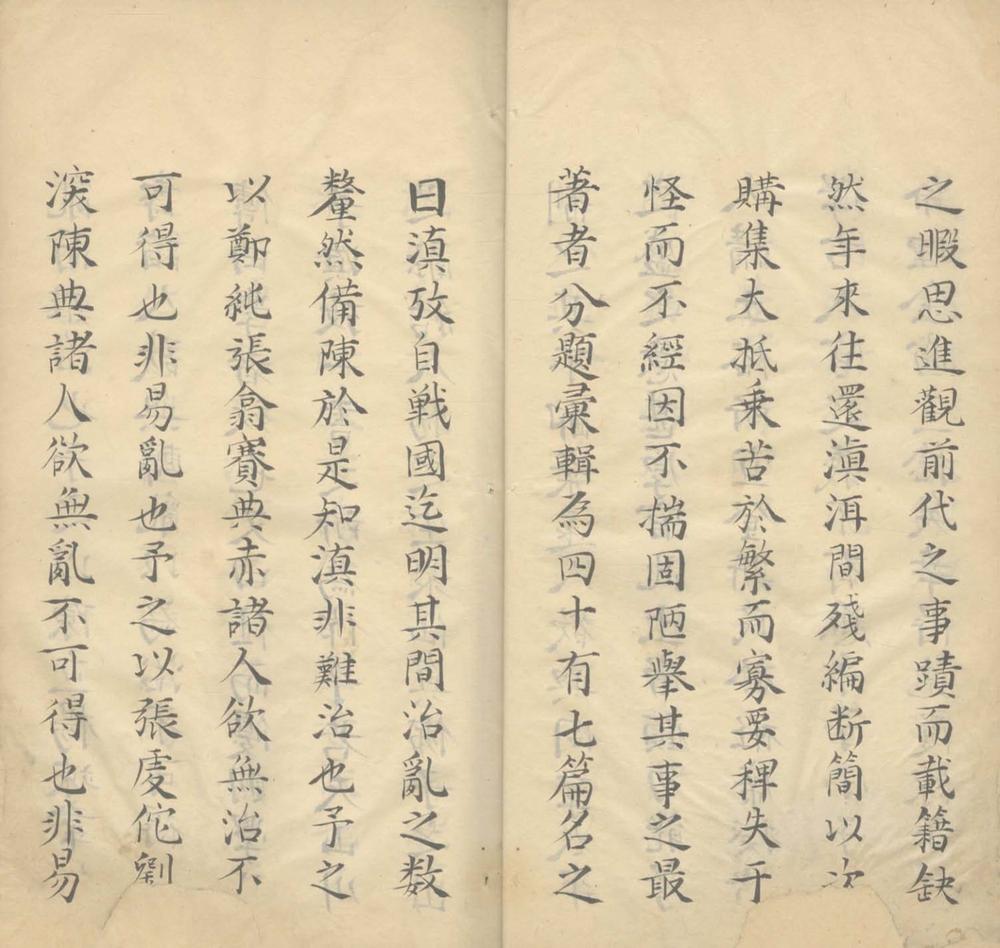 之暇思進觀前代之事蹟而載籍缺
然年來往還滇洱間殘編断簡以次
購集大抵乗苦於繁而寡要稗失于
怪而不經因不揣固陋舉其事之最
著者分題彙輯為四十有七篇名之
曰滇攷自戦國迄明其間治亂之数
犛然備陳於是知滇非難治也予之
以鄭純張翕賽典赤諸人欲無治不
可得也非易亂也予之以張虔佗劉
深陳典諸人欲無亂不可得也非易